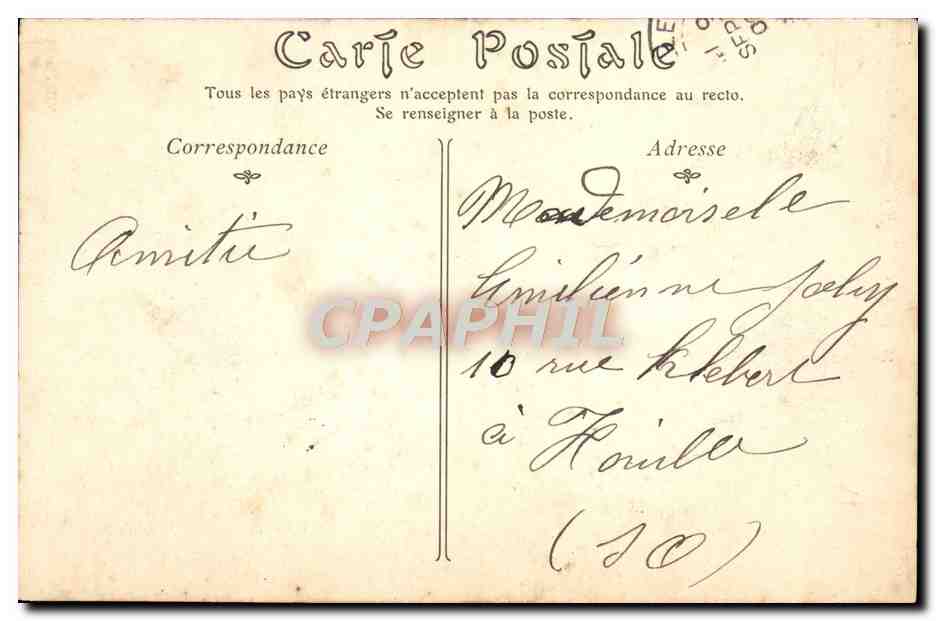 Carte Postale
Tous les pays étrangers n'acceptent pas la correspondance au recto.
Se renseigner à la poste.
Correspondance
Adresse
Amitié
Mademoisele
Emilienne Joly
10 rue Klebert
à Houilles
(SO)
SEP
CPAPHIL